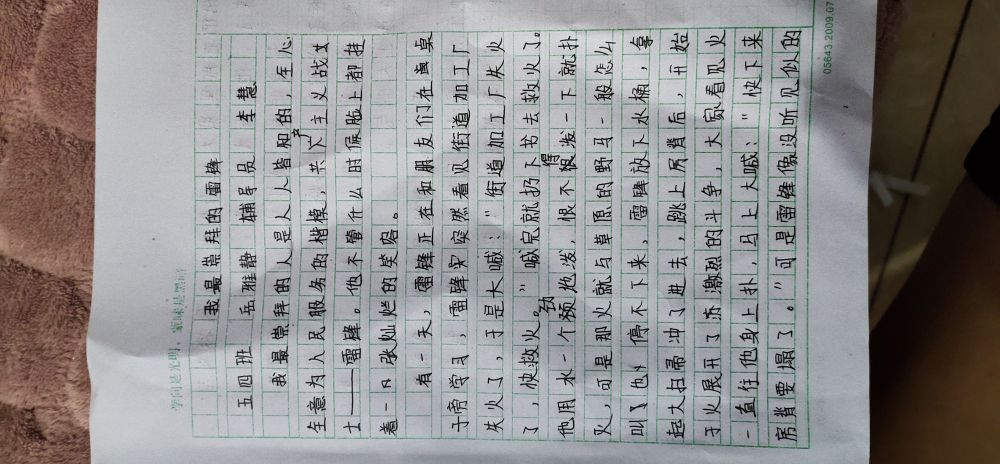 学问是光明，蒙昧是黑暗
我最崇拜的雷锋
五四班 岳雅静 辅导员 李慧
我最崇拜的人是人人皆知的，全心
全意为人民服务的楷模，共产主义战士
士——雷锋。他不管什么时候脸上都挂
着一张灿烂的笑容。
有一天，雷锋正在和朋友们在桌
子旁学习，雷锋突然看见街道加工厂
失火了，于是大喊：“街道加工厂失火
了，快救火。”喊完就扔下书去救火了。
他用水一个劲地泼，恨不得泼一下就扑
火，可是那火就与草原的野马一般怎么
叫也停不下来，雷锋放下水桶，拿
起大扫帚冲了进去，跳上房背后，开始
于火展开了激烈的斗争，大家看见火
一直往他身上扑，马上大喊：“快下来
房背要塌了。”可是雷锋像没听见似的
05643 2009.07